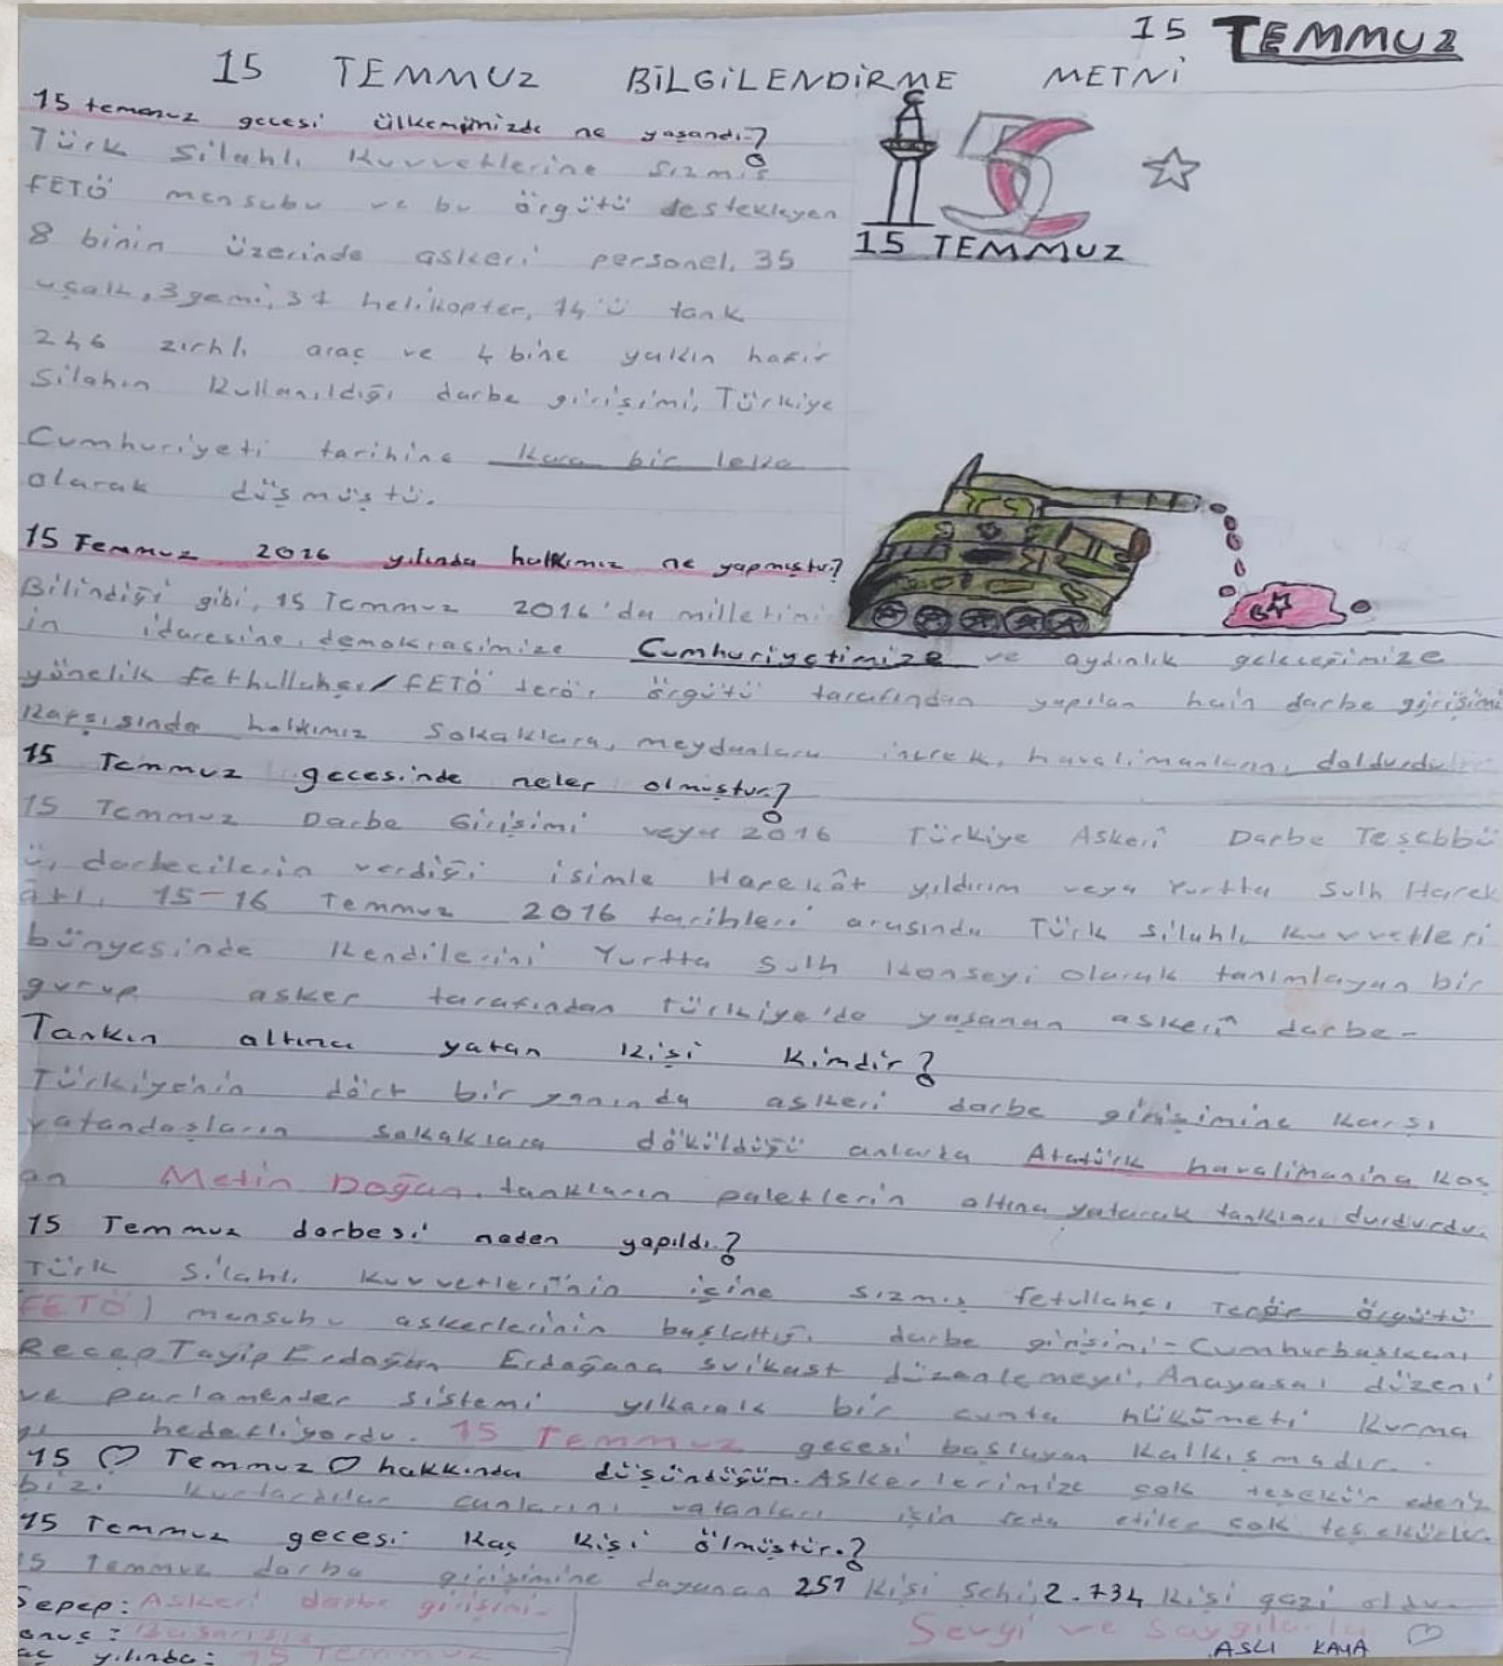 15 TEMMUZ
15 TEMMUZ BİLGİLENDİRME METNİ
15 temmuz gecesi ülkemimizde ne yaşandı?
Türk Silahlı Kuvvetlerine sızmış
FETÖ mensubu ve bu örgütü destekleyen
8 binin üzerinde askeri personel, 35
uçak, 3 gemi, 37 helikopter, 74'ü tank
246 zırhlı araç ve 4 bine yakın hafif
Silahın Kullanıldığı darbe girişimi, Türkiye
Cumhuriyeti tarihine kara bir leke
olarak düşmüştü.
15 TEMMUZ
15 Temmuz 2016 yılında halkımız ne yapmıştır?
Bilindiği gibi, 15 Temmuz 2016'da milletimi
in idaresine, demokrasimize Cumhuriyetimize ve aydınlık geleceğimize
yönelik Fethullahçı/FETÖ terör örgütü tarafından yapılan hain darbe girişimi
Karşısında halkımız Sokaklara, meydanlara inerek, havalimanlarını doldurdular
15 Temmuz gecesinde neler olmuştur?
15 Temmuz Darbe Girişimi veya 2016 Türkiye Askerî Darbe Teşebbü
ü, darbecilerin verdiği isimle Harekât yıldırım veya Yurtta Sulh Harek
âtı, 15-16 Temmuz 2016 tarihleri arasında Türk silahlı kuvvetleri
bünyesinde Kendilerini Yurtta Sulh Konseyi olarak tanımlayan bir
gurup asker tarafından Türkiye'de yaşanan askerî darbe-
Tankın altına yatan Kişi Kimdir?
Türkiye'nin dört bir yanında askeri darbe girişimine karşı
vatandaşların sokaklara döküldüğü anlarda Atatürk havalimanına koş
an Metin Doğan, tankların paletlerin altına yatarak tankları durdurdu.
15 Temmuz darbesi neden yapıldı?
Türk Silahlı Kuvvetleri'nin içine sızmış fetullahçı Terör örgütü
(FETÖ) mensubu askerlerinin başlattığı darbe girişimi - Cumhurbaşkanı
Recep Tayip Erdoğan Erdoğana suikast düzenlemeyi, Anayasal düzeni
ve parlamender sistemi yıkarak bir cunta hükümeti Kurma
yı hedefliyordu. 15 Temmuz gecesi başlayan Kalkışmadır.
15 ♡ Temmuz ♡ hakkında düşündüğüm. Askerlerimize çok teşekür ederiz
bizi kurtardılar canlarını vatanları için feda etiler çok teşekürler.
15 Temmuz gecesi Kaç Kişi ölmüştür.?
15 Temmuz darbe girişimine dayanan 251 Kişi Şehi, 2.734 Kişi gazi oldu.
Sepep: Askeri darbe girişimi-
onuç: Başarısız
aç yılında: 15 Temmuz
Sevgi ve Saygılarla ♡
ASLI KAYA